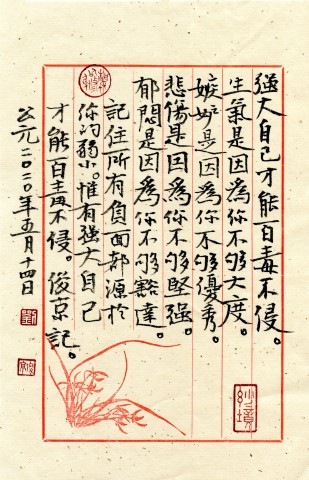 强大自己才能百毒不侵。
生氣是因為你不够大度。
嫉妒是因為你不够優秀。
悲傷是因為你不够堅强。
郁悶是因為你不够豁達。
記住所有負面都源於
你的弱小。惟有强大自己
才能百毒不侵。俊京記。
公元二〇二〇年五月十四日
劉